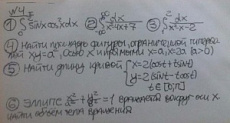 №4
① ∫ sin x cos³x dx ② ∫ dx/(x²+4x+7) ③ ∫ dx/(x²+x-2)
④ Найти площадь фигуры, ограниченной гипербо
лой xy=a², осью x и прямыми x=a, x=2a (a>0)
⑤ Найти длину кривой { x=2(cost+tsint)
y=2(sint-tcost)
t∈[0;π]
⑥ Эллипс x²/a²+y²/b²=1 вращается вокруг оси x
найти объем тела вращения